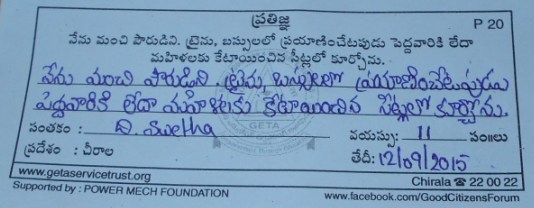 ప్రతిజ్ఞ
P 20
నేను మంచి పౌరుడిని. ట్రైను, బస్సులలో ప్రయాణించేటపుడు పెద్దవారికి లేదా
మహిళలకు కేటాయించిన సీట్లలో కూర్చోను.
నేను మంచి పౌరుడిని ట్రైను, బస్సులలో ప్రయాణించేటప్పుడు
పెద్దవారికి లేదా మహిళలకు కేటాయించిన సీట్లలో కూర్చోను.
సంతకం : D. Swetha వయస్సు: 11 సం॥లు
ప్రదేశం : చీరాల తేదీ: 12/09/2015
GETA
www.getaservicetrust.org Chirala ☎ 22 00 22
Supported by : POWER MECH FOUNDATION www.facebook.com/GoodCitizensForum